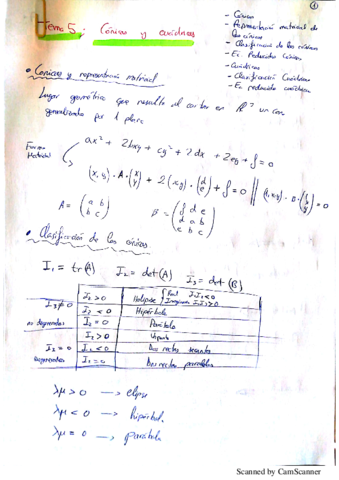 ①
Tema 5: Cónicas y cuádricas
- Cónicas
- Representación matricial de las cónicas
- Clasificación de las cónicas
- Ec. Reducida cónicas
- Cuádricas
- Clasificación Cuádricas
- Ec reducida cuádricas
• Cónicas y representación matricial
Lugar geométrico que resulta al cortar en R³ un cono
generalizado por 1 plano
ax² + 2bxy + cy² + 2dx + 2ey + f = 0
Forma Matricial
(x, y) · A · (x y) + 2(x y) · (d e) + f = 0 || (1, x, y) · B · (1 x y) = 0
A = (a b
b c)
B = (f d e
d a b
e b c)
• Clasificación de las cónicas
I₁ = tr(A) I₂ = det(A) I₃ = det(B)
I₃ ≠ 0 I₂ > 0 Elipse Real I₁·I₃ < 0
Imaginaria I₁·I₃ > 0
I₂ < 0 Hipérbola
no degeneradas I₂ = 0 Parábola
I₂ > 0 1 punto
I₃ = 0 I₂ < 0 Dos rectas secantes
degeneradas I₂ = 0 Dos rectas paralelas
λμ > 0 → elipse
λμ < 0 → hipérbol.
λμ = 0 → parábola
Scanned by CamScanner